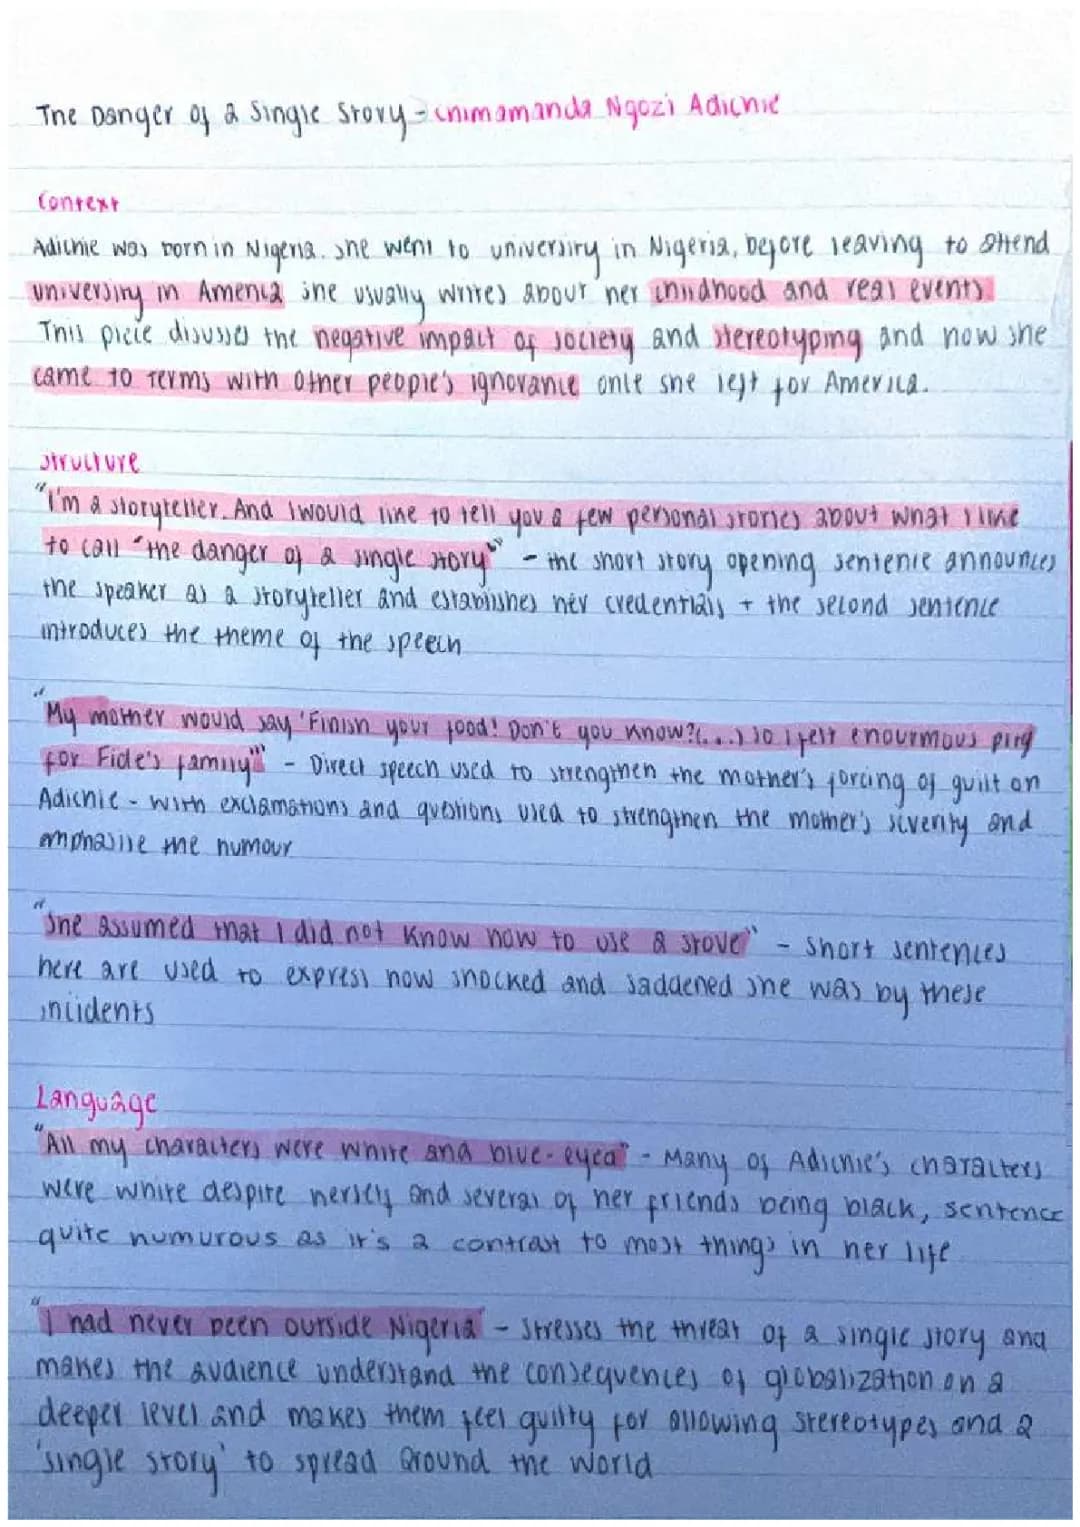 The Danger of a Single Story - Chimamanda Ngozi Adichie
Context
Adichie was born in Nigeria. She went to university in Nigeria, before leaving to attend
university in America she usually writes about her childhood and real events
This piece disusses the negative impact of society and stereotyping and how she
came to terms with other people's ignorance once she left for America.
Structure
"I'm a storyteller. And I would like to tell you a few personal stories about what I like
to call "the danger of a single story"" - the short story opening sentence announces
the speaker as a storyteller and establishes her credentials + the second sentence
introduces the theme of the speech
"My mother would say 'Finish your food! Don't you know?(...) so I felt enourmous pity
for Fide's family"" - Direct speech used to strengthen the mother's forcing of guilt on
Adichie - with exclamations and questions used to strengthen the mother's severity and
emphasise the humour
"She assumed that I did not know how to use a stove" - short sentences
here are used to express how shocked and saddened she was by these
incidents
Language
"All my characters were white and blue-eyed" - Many of Adichie's characters
were white despite herself and several of her friends being black, sentence
quite humurous as it's a contrast to most things in her life
"I had never been outside Nigeria" - stresses the threat of a single story and
makes the audience understand the consequences of globalization on a
deeper level and makes them feel guilty for allowing stereotypes and a
'single story' to spread around the world